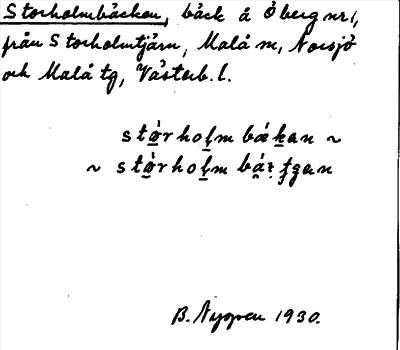 Storholmbäcken, bäck å Öberg nr 1,
från Storholmtjärn, Malå sn, Norsjö
och Malå tg, Västerb. l.
stò̱rhoḻm bǽḵan ~
~ stò̱rhoḻm
B. Nygren 1930.